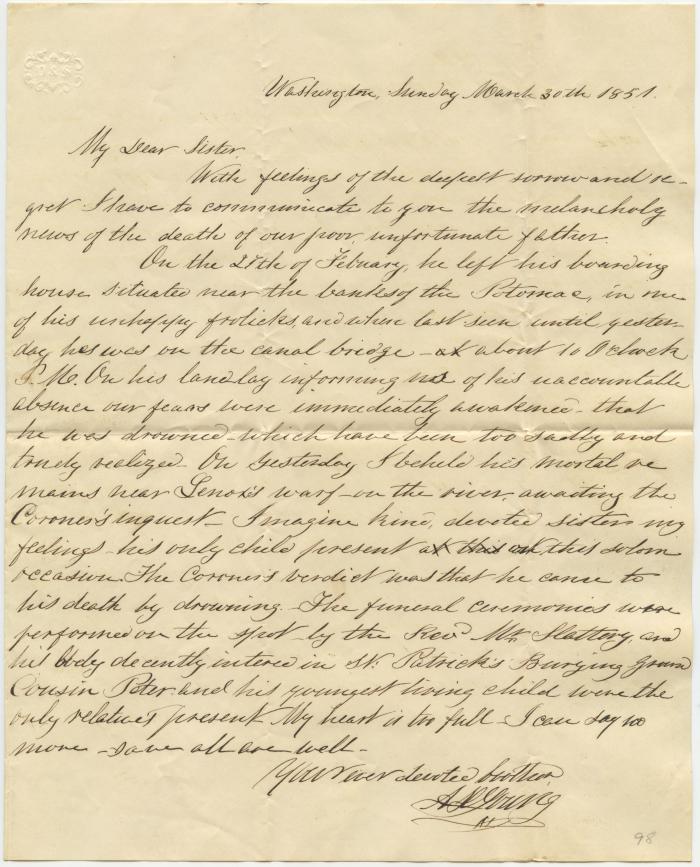 Washington, Sunday March 30th 1851.
My Dear Sister.
With feelings of the deepest sorrow and re-
gret I have to communicate to you the melancholy
news of the death of our poor, unfortunate father.
On the 27th of Febuary, he left his boarding
house situated near the banks of the Potomac, in one
of his unhappy frolicks, and when last seen until yester-
day he was on the canal bridge - at about 10 Oclock
P. M. On his landlay informing me of his uaccountable
absence our fears were immediately awakened - that
he was drowned - which have been too sadly and
truely realized. On yesterday I beheld his mortal re
mains near Lenox's warf - on the river, awaiting the
Coroner's inquest - Imagine kind, devoted sister my
feelings - his only child present this solom
occasion. The Coroner's verdict was that he came to
his death by drowning - The funeral ceremonies were
performed on the spot - by the Revd Mr. Slattery, and
his body decently intered in St. Patrick's Burying Groun
Cousin Peter and his youngest living child were the
only relatives present. My heart is too full - I can say no
more - save all are well -
Your ever devoted brother
A. Young
98